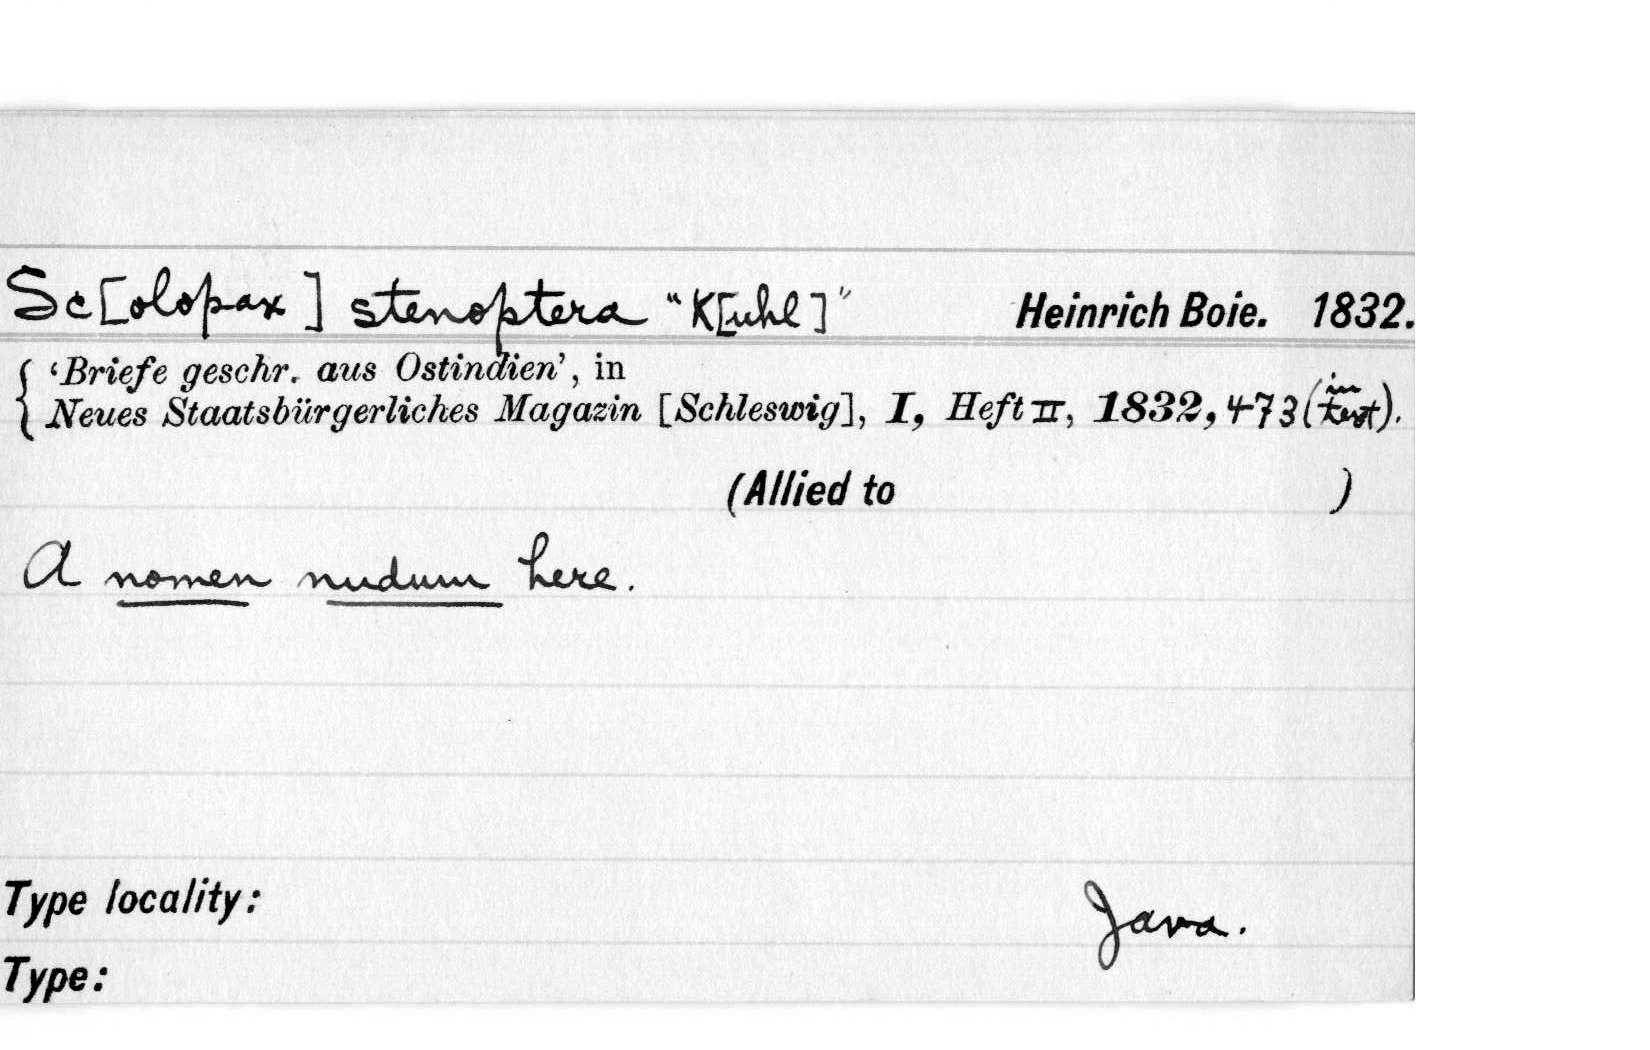 Sc[olopax] stenoptera "K[uhl]" Heinrich Boie. 1832.
{ 'Briefe geschr. aus Ostindien', in
Neues Staatsbürgerliches Magazin [Schleswig], I, Heft II, 1832, 473 (in text).
(Allied to )
A nomen nudum here.
Type locality: Java.
Type: